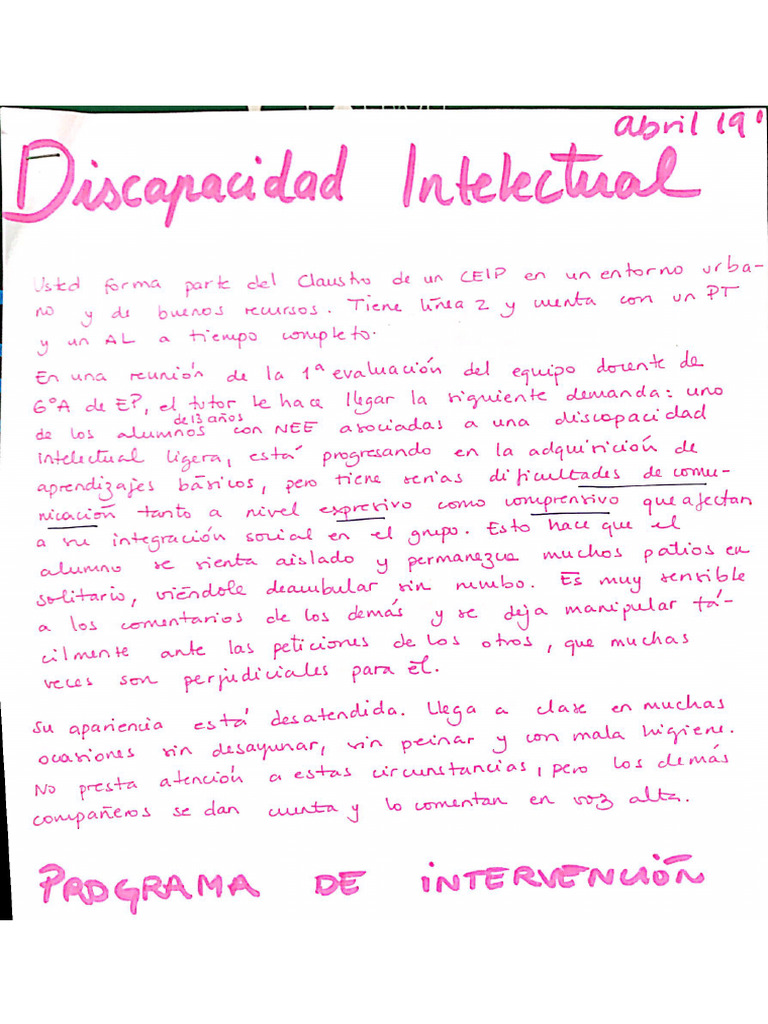 abril 19'
Discapacidad Intelectual
Usted forma parte del Claustro de un CEIP en un entorno urba-
no y de buenos recursos. Tiene línea 2 y cuenta con un PT
y un AL a tiempo completo.
En una reunión de la 1ª evaluación del equipo docente de
6ºA de EP, el tutor le hace llegar la siguiente demanda: uno
de los alumnos de 13 años con NEE asociadas a una discapacidad
intelectual ligera, está progresando en la adquisición de
aprendizajes básicos, pero tiene serias dificultades de comu-
nicación tanto a nivel expresivo como comprensivo que afectan
a su integración social en el grupo. Esto hace que el
alumno se sienta aislado y permanezca muchos patios en
solitario, viéndole deambular sin rumbo. Es muy sensible
a los comentarios de los demás y se deja manipular fá-
cilmente ante las peticiones de los otros, que muchas
veces son perjudiciales para él.
Su apariencia está desatendida. Llega a clase en muchas
ocasiones sin desayunar, sin peinar y con mala higiene.
No presta atención a estas circunstancias, pero los demás
compañeros se dan cuenta y lo comentan en voz alta.
PROGRAMA DE INTERVENCIÓN